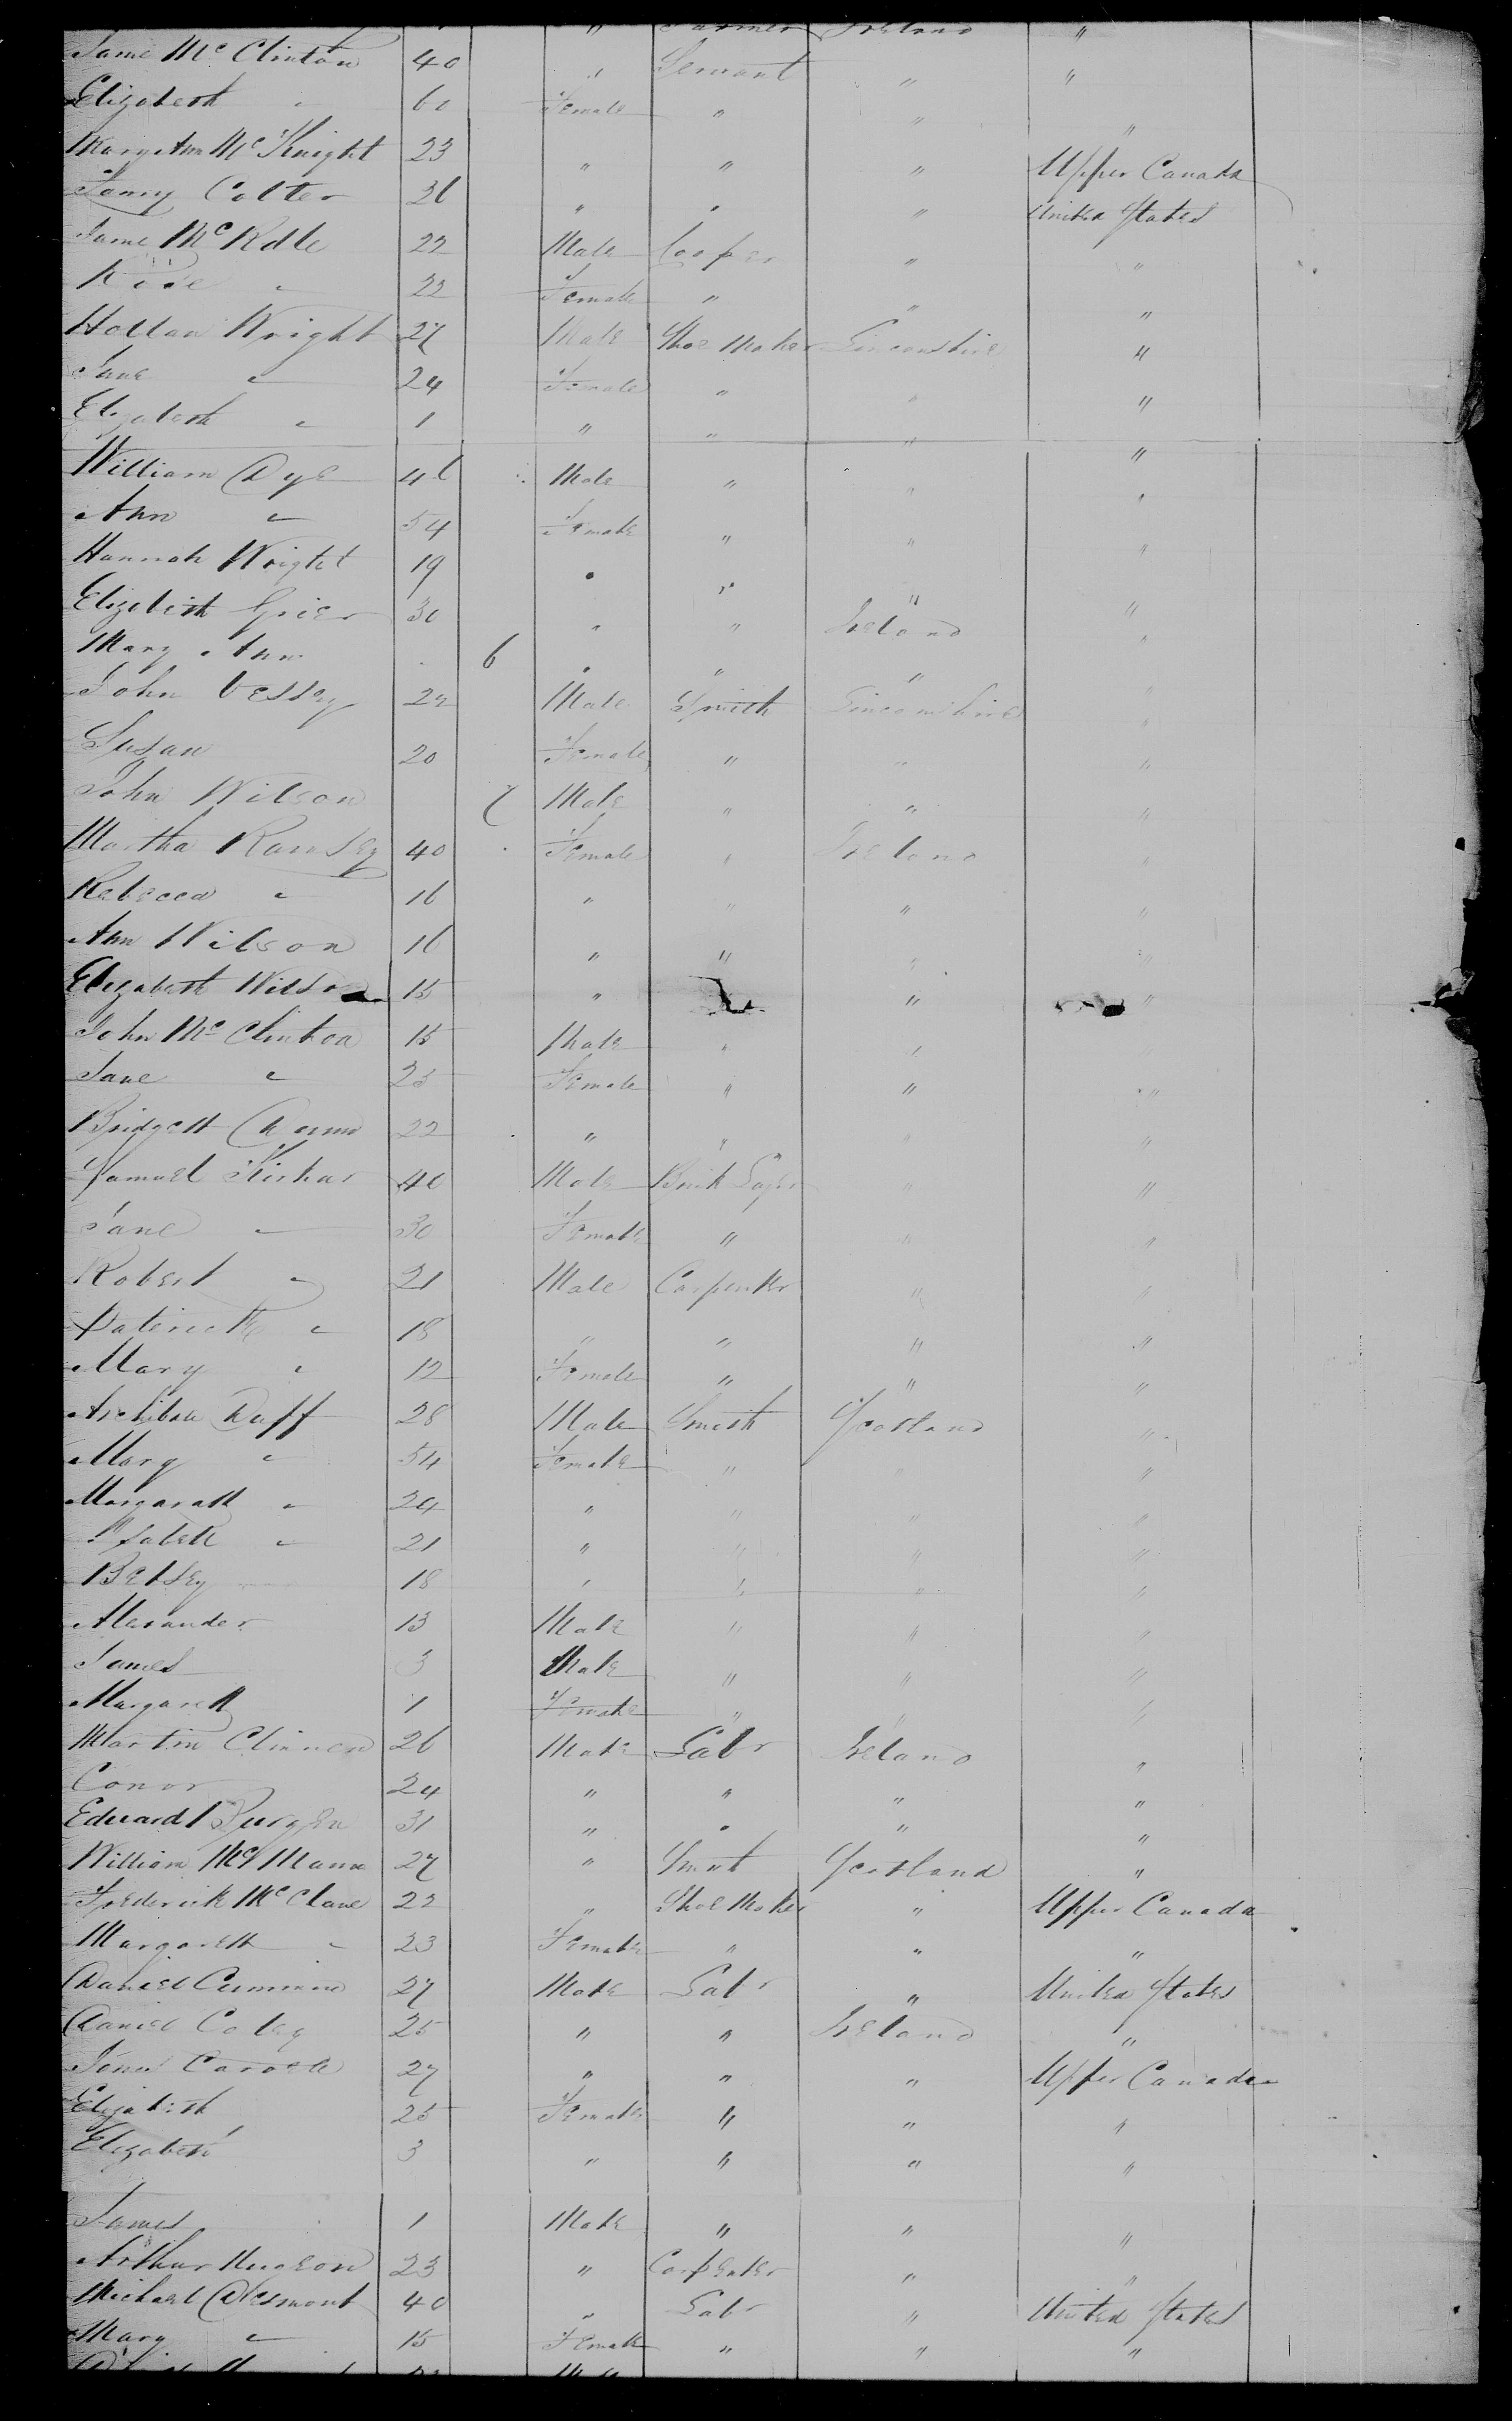 " Farmer Ireland "
Jame Mc Clinton 40 " Servant " "
Elizabeth " 60 Female " " "
Mary Ann Mc Knight 23 " " " Upper Canada
Fanny Colter 26 " " " United States
Jame Mc Rdle 22 Male Cooper " "
Rose " 22 Female " " "
Hollan Wright 27 Male Shoe Maker Linconshire "
Jane " 24 Female " " "
Elizabeth " 1 " " " "
William Dye 46 Male " " "
Ann " 54 Female " " "
Hannah Wright 19 " " " "
Elizabeth Grier 30 " " Ireland "
Mary Ann 6 " " " "
John Vessey 22 Male Smith Linconshire "
Susan 20 Female " " "
John Wilson 7 Male " " "
Martha Ramsey 40 Female " Ireland "
Rebecca " 16 " " " "
Ann Wilson 16 " " " "
Elezabeth Wilson 15 " " "
John Mc Clinton 15 Male " "
Jane " 25 Female " " "
Bridgett 22 " " " "
Samuel 40 Male Brick Layer " "
Jane " 30 Female " " "
Robert " 21 Male Carpenter " "
Paterick " 18 " " " "
Mary " 12 Female " " "
Archibald Duff 28 Male Smith Scotland "
Mary " 54 Female " " "
Margarett " 24 " " " "
Isabell " 21 " " " "
Betsey 18 " " " "
Alexander 13 Male " " "
James 3 Male " " "
Margarett 1 Female " " "
Martin Clinnen 26 Male Labr Ireland "
Conor 24 " " " "
Edward 31 " " " "
William Mc Mann 27 " Smith Scotland "
Frederick Mc Clane 22 " Shoe Maker " Upper Canada
Margarett " 23 Female " " "
Daniel Cummins 27 Male Labr " United States
Daniel Coley 25 " " Ireland "
Carroll 27 " " " Upper Canada
Elizabeth 25 Female " " "
Elezabeth 3 " " " "
James 1 Male " " "
Arthur Hugeon 23 " Carpenter " "
Michael Desmont 40 " Labr " United States
Mary " 15 Female " " "